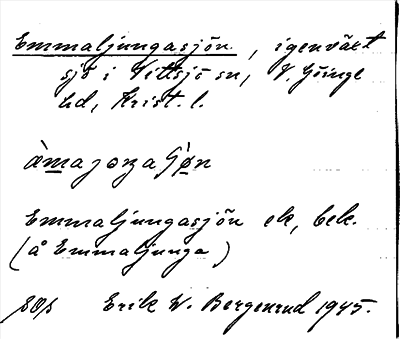 Emmaljungasjön, igenväxt
sjö i Vittsjö sn, V. Göinge
hd, Krist. l.
Emmaljungasjön ek, bek.
(å Emmaljunga)
Erik W. Bergenrud 1945.